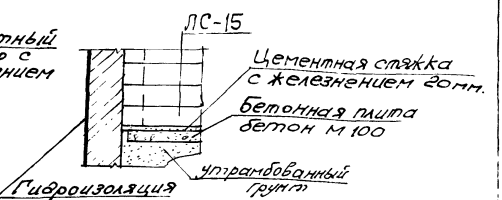 ЛС-15
тный
р с
нием
Цементная стяжка
с железнением 20мм.
Бетонная плита
бетон М100
утрамбованный
грунт
Гидроизоляция